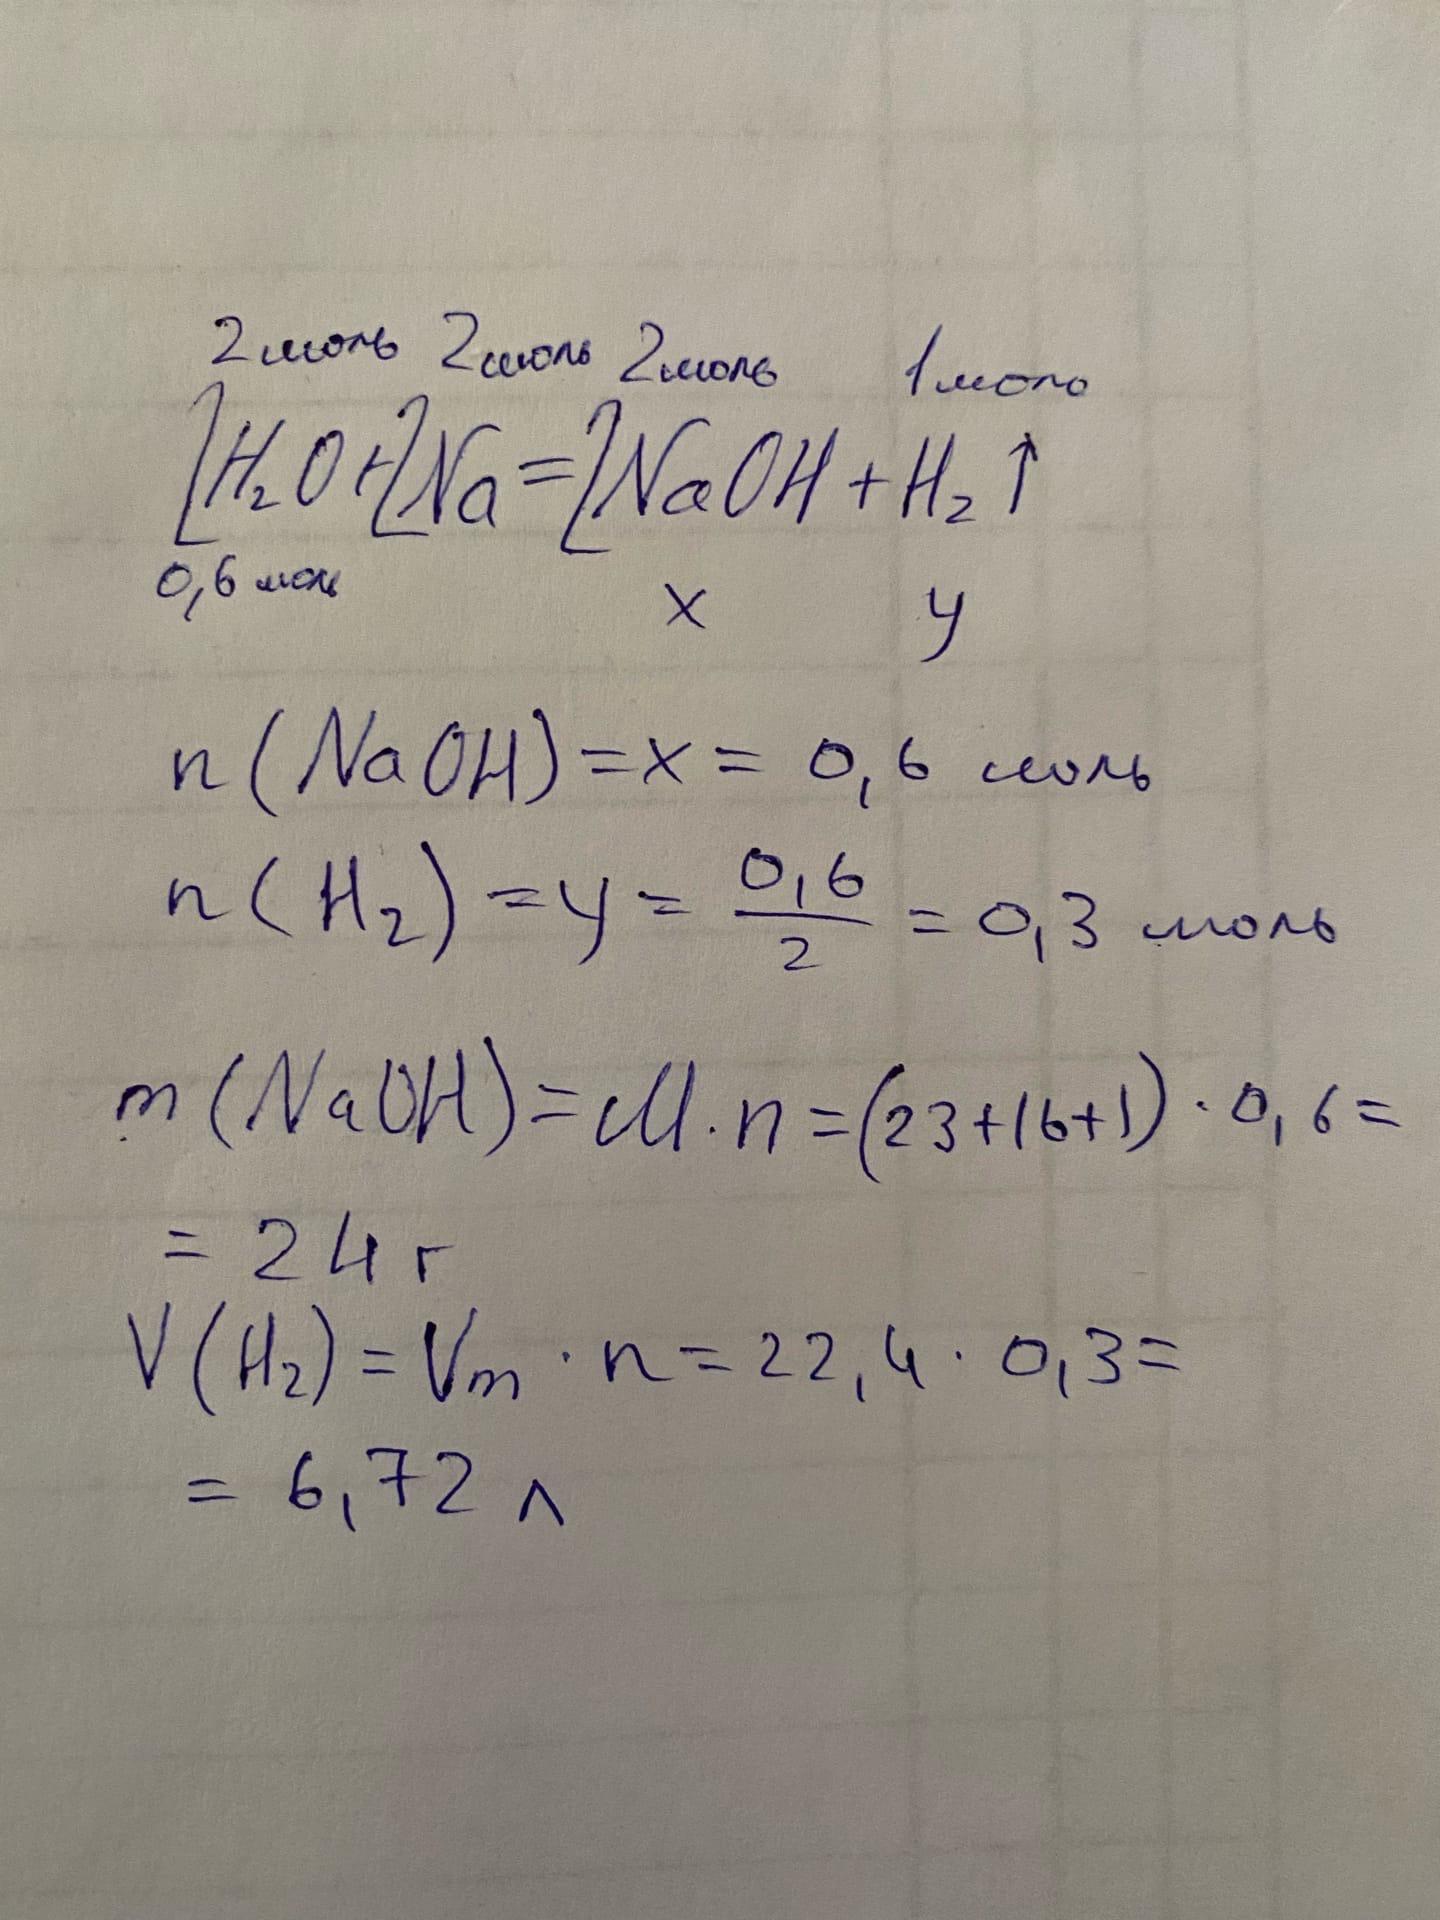 2 моль 2 моль 2 моль 1 моль
2H₂O + 2Na = 2NaOH + H₂↑
0,6 моль x y
n(NaOH) = x = 0,6 моль
n(H₂) = y = 0,6/2 = 0,3 моль
m(NaOH) = M · n = (23+16+1) · 0,6 =
= 24 г
V(H₂) = Vm · n = 22,4 · 0,3 =
= 6,72 л